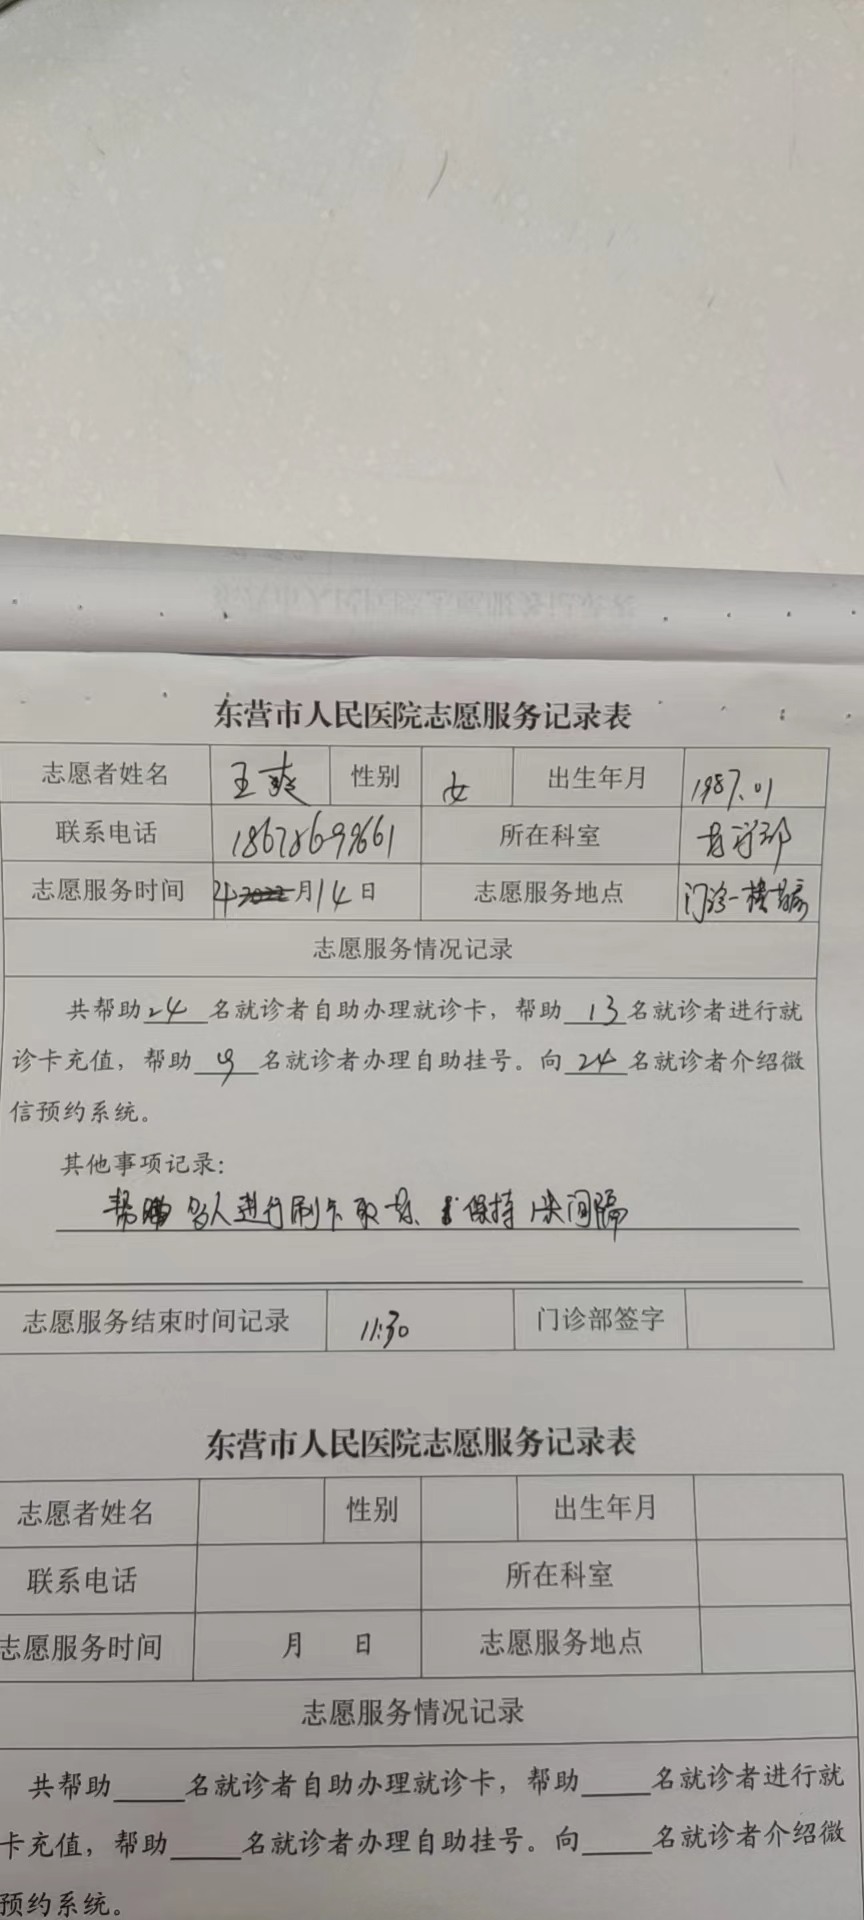 东营市人民医院志愿服务记录表
志愿者姓名 王爽 性别 女 出生年月 1987.01
联系电话 18678699661 所在科室
志愿服务时间 4 2022 月14日 志愿服务地点 门诊一楼
志愿服务情况记录
共帮助 24 名就诊者自助办理就诊卡，帮助 13 名就诊者进行就
诊卡充值，帮助 9 名就诊者办理自助挂号。向 24 名就诊者介绍微
信预约系统。
其他事项记录：
帮助 名人进行刷卡取 保持 1米间隔
志愿服务结束时间记录 11:30 门诊部签字
东营市人民医院志愿服务记录表
志愿者姓名 性别 出生年月
联系电话 所在科室
志愿服务时间 月 日 志愿服务地点
志愿服务情况记录
共帮助____名就诊者自助办理就诊卡，帮助____名就诊者进行就
卡充值，帮助____名就诊者办理自助挂号。向____名就诊者介绍微
预约系统。